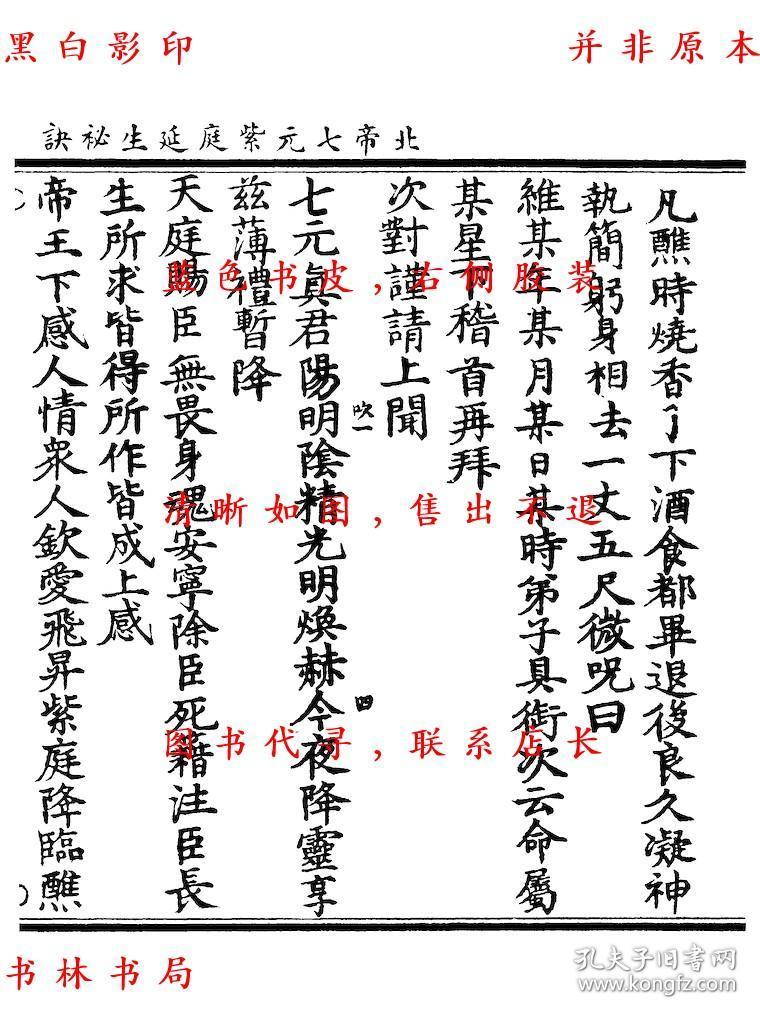 黑白影印
并非原本
北帝七元紫庭延生祕訣
凡醮時燒香了下酒食都畢退後良久凝神
執簡躬身相去一丈五尺微呪曰
維某年某月某日某時弟子具銜次云命屬
某星下稽首再拜
次對謹請上聞
七元真君陽明陰精光明煥赫今夜降靈享
吹一
四
茲薄禮暫降
天庭賜臣無畏身魂安寧除臣死籍注臣長
生所求皆得所作皆成上感
帝王下感人情眾人欽愛飛昇紫庭降臨醮
蓝色书皮,右侧胶装
清晰如图,售出不退
图书代寻,联系店长
书林书局
孔夫子旧书网
www.kongfz.com